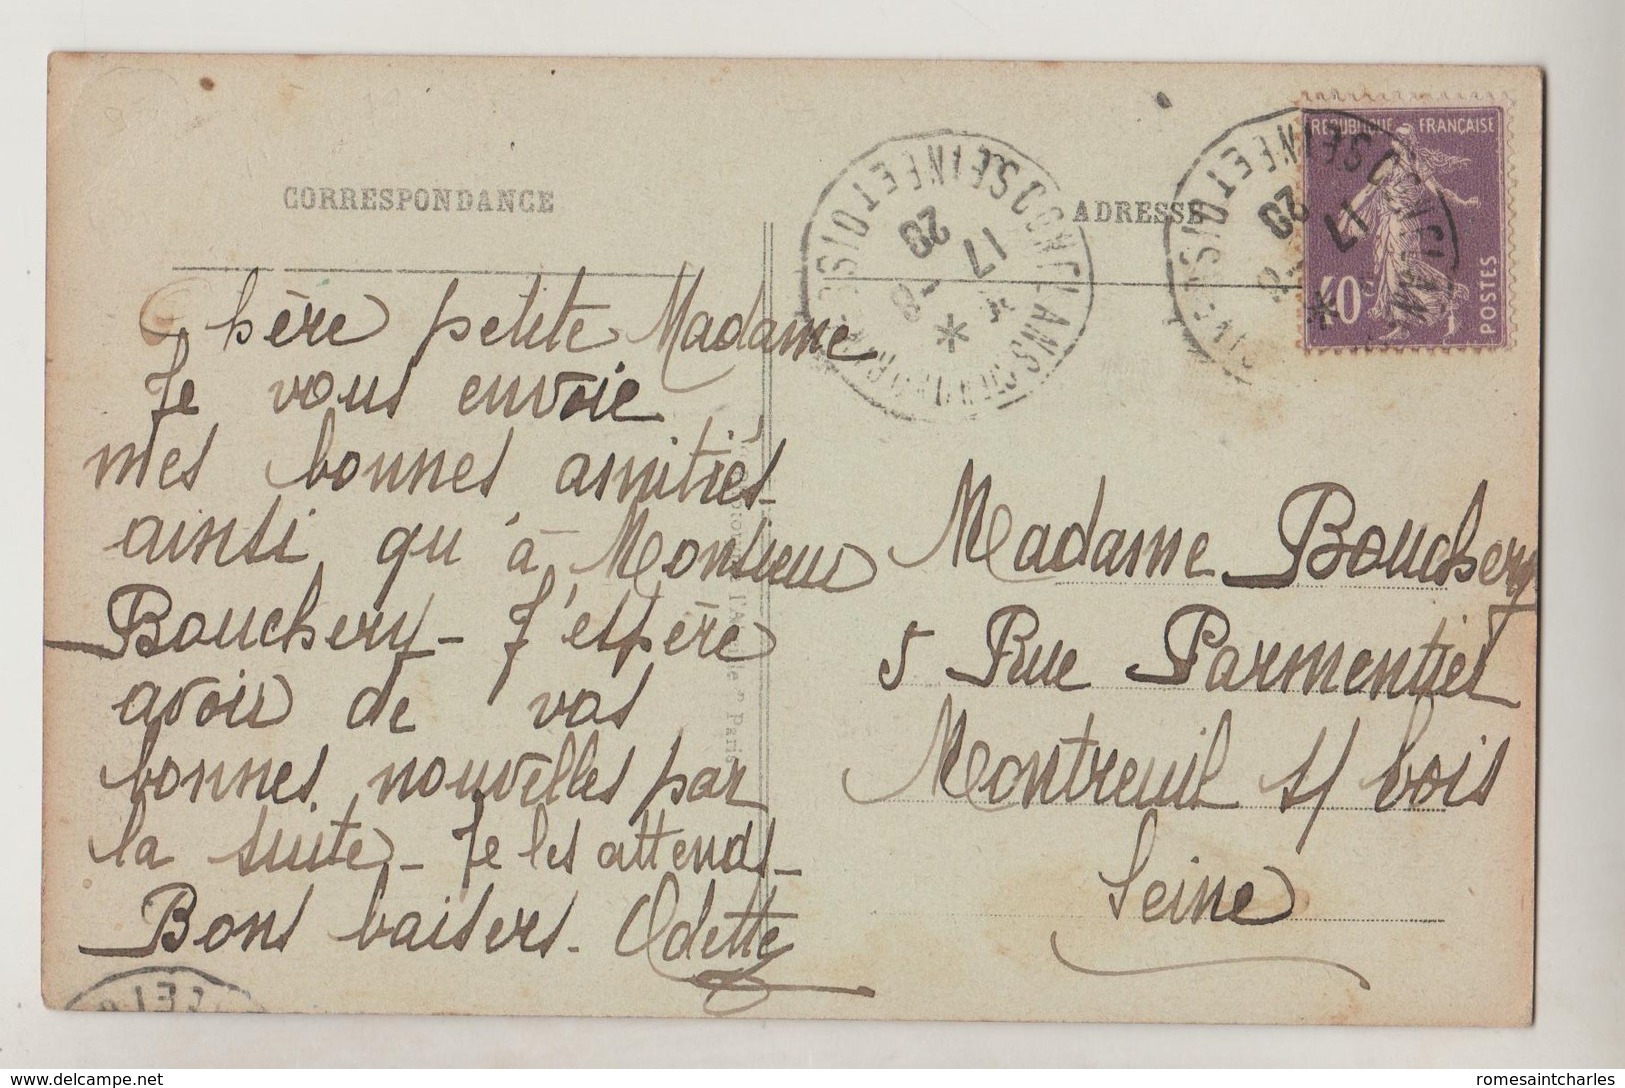 CORRESPONDANCE
Chère petite Madame
Je vous envoie
mes bonnes amitiés
ainsi qu'à Monsieur
Bouchery - J'espère
avoir de vos
bonnes nouvelles par
la suite - Je les attends -
Bons baisers - Odette
ADRESSE
Madame Bouchery
5 Rue Parmentier
Montreuil s/ bois
Seine
REPUBLIQUE FRANÇAISE
40
POSTES
CONFLANS
SEINE ET OISE
17
20
8
Paris
delcampe.net
romesaintcharles